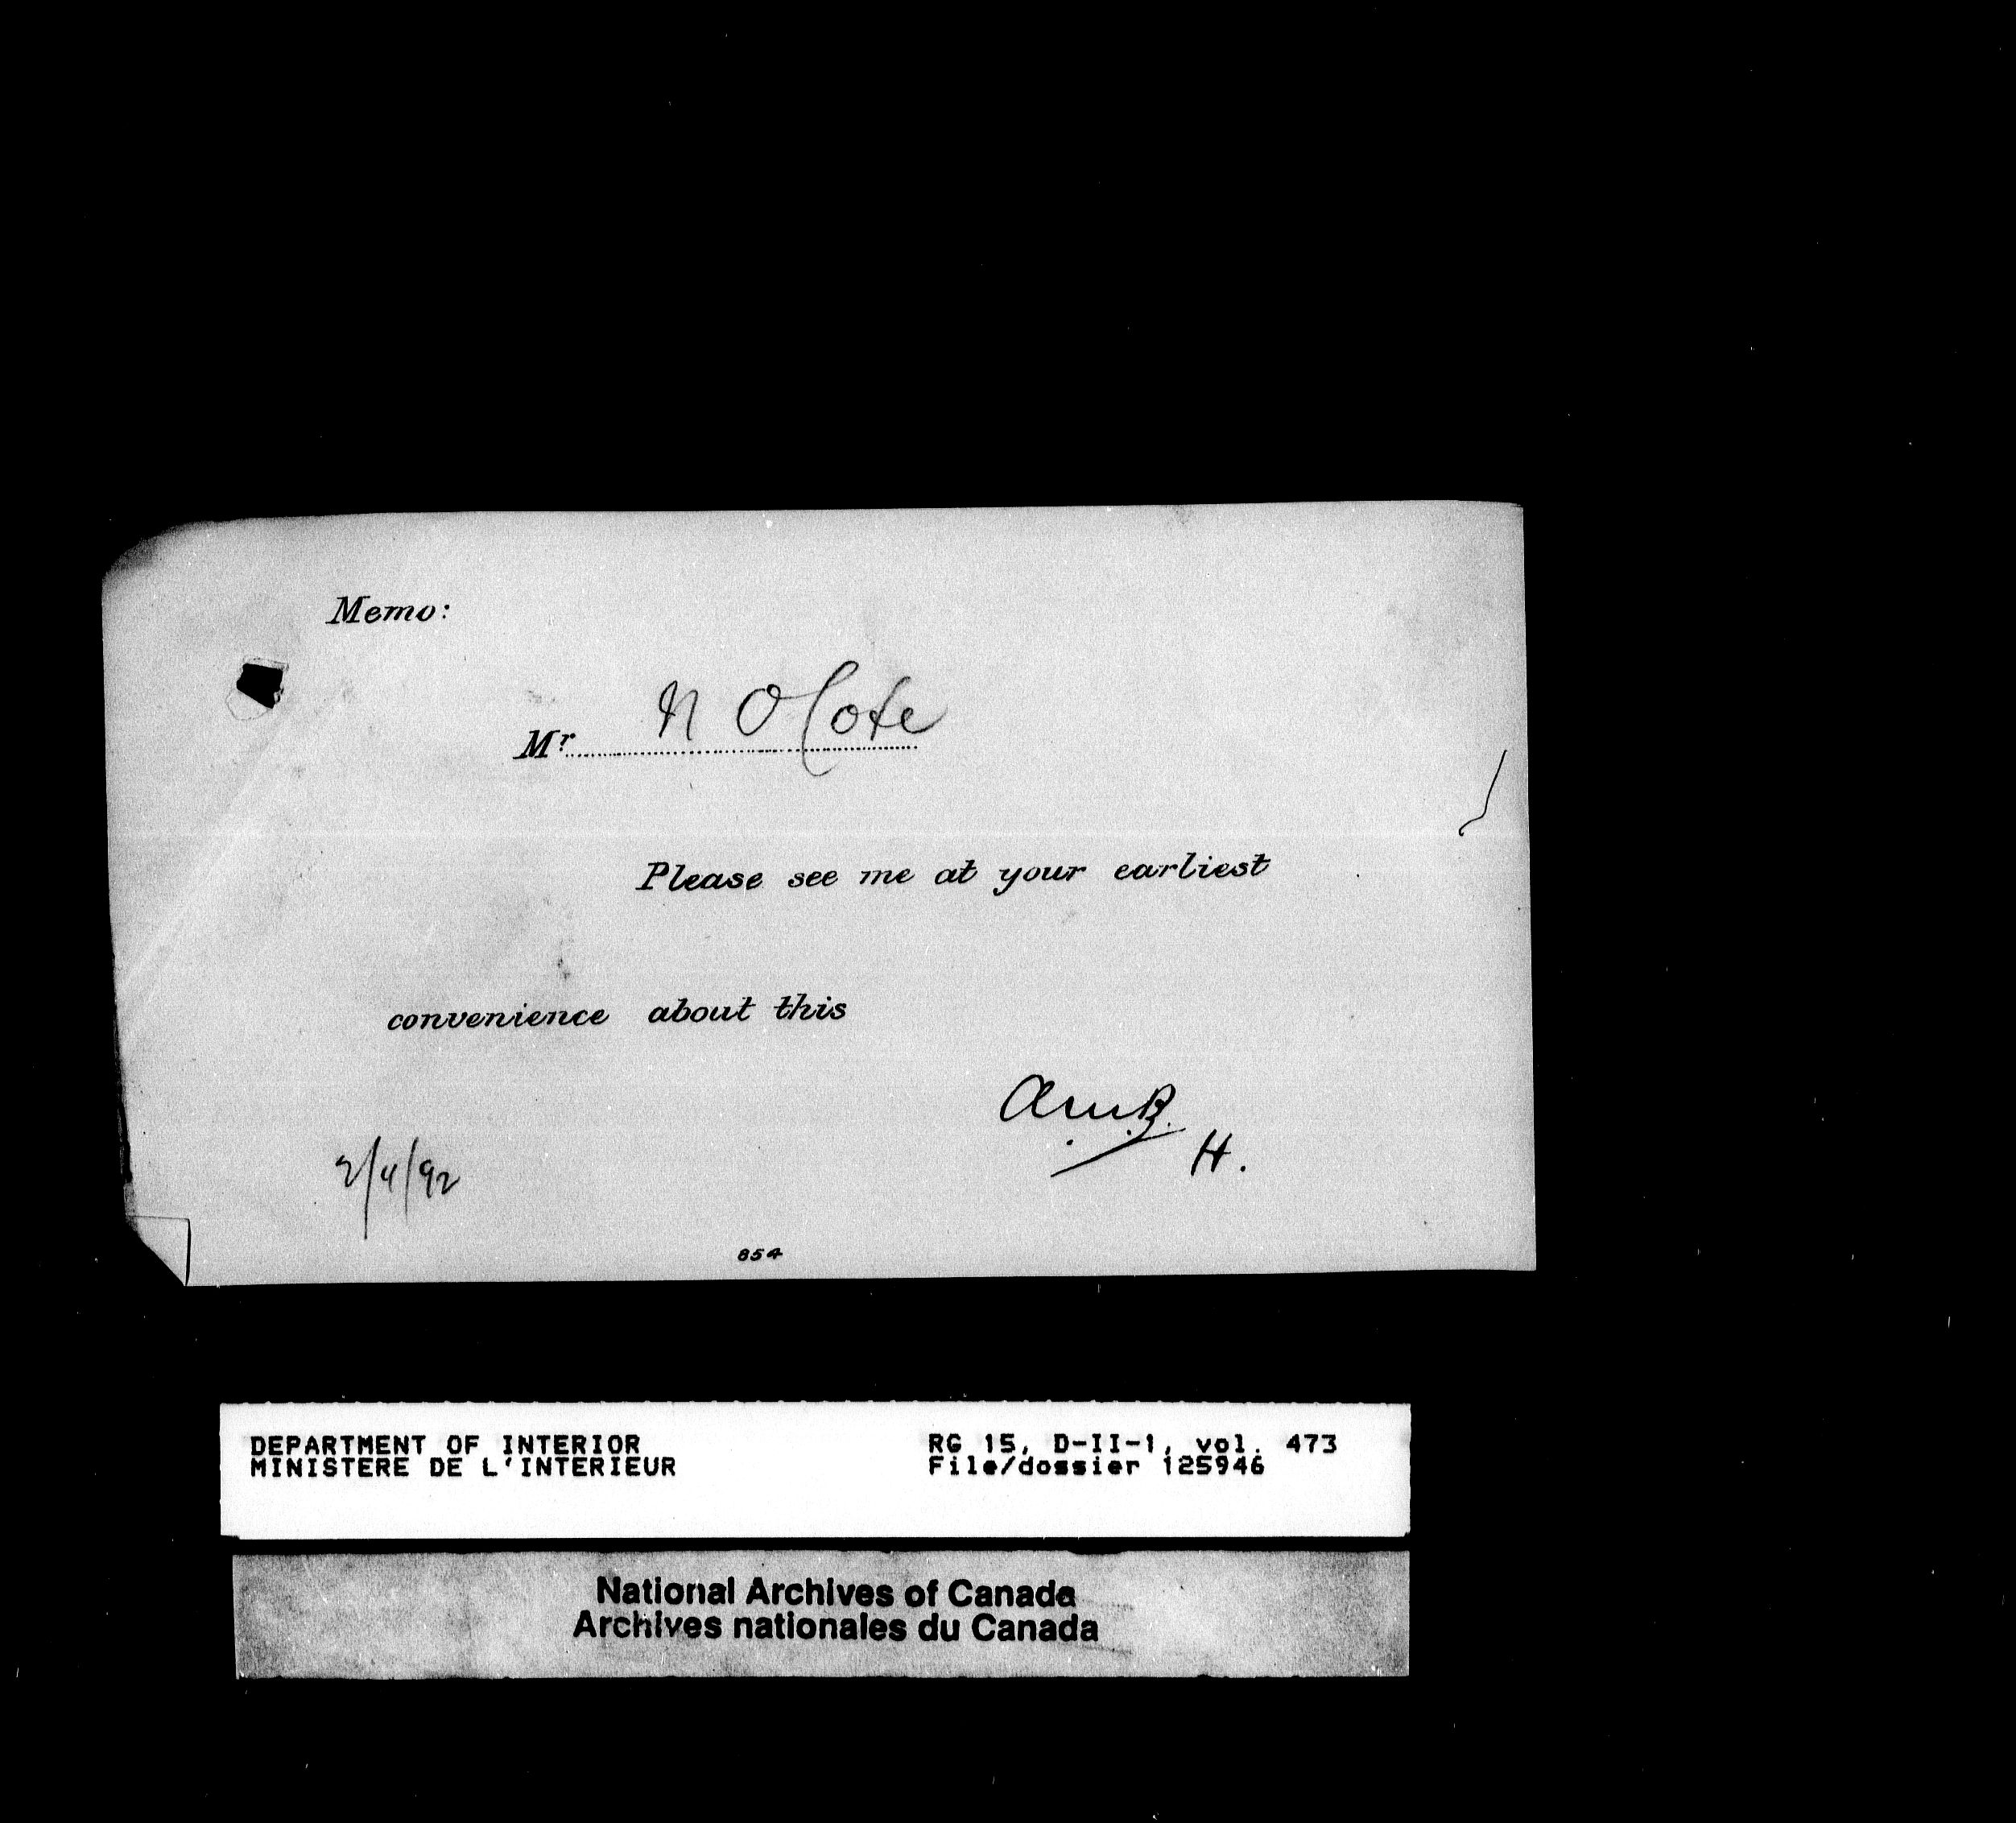 Memo:
Mr. N O Cote
Please see me at your earliest
convenience about this
A.M.B.
H.
2/4/92
854
DEPARTMENT OF INTERIOR
MINISTERE DE L'INTERIEUR
RG 15, D-II-1, vol. 473
File/dossier 125946
National Archives of Canada
Archives nationales du Canada